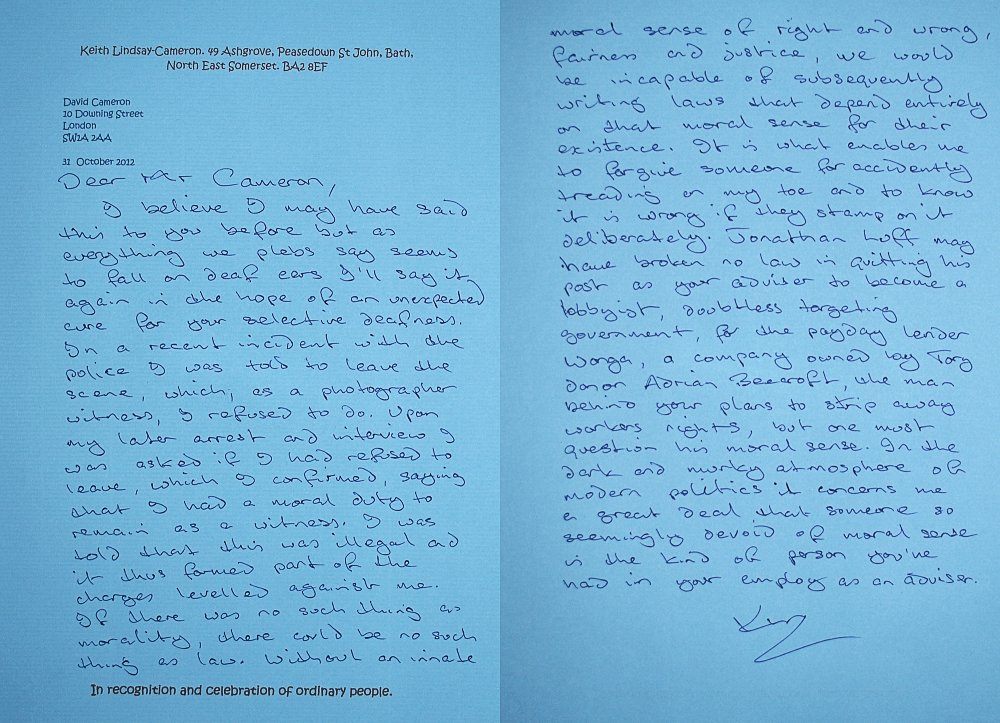 Keith Lindsay-Cameron. 49 Ashgrove, Peasedown St John, Bath,
North East Somerset. BA2 8EF
David Cameron
10 Downing Street
London
SW1A 2AA
31 October 2012
Dear Mr Cameron,
I believe I may have said
this to you before but as
everything we plebs say seems
to fall on deaf ears I'll say it
again in the hope of an unexpected
cure for your selective deafness.
In a recent incident with the
police I was told to leave the
scene, which, as a photographer
witness, I refused to do. Upon
my later arrest and interview I
was asked if I had refused to
leave, which I confirmed, saying
that I had a moral duty to
remain as a witness. I was
told that this was illegal and
it thus formed part of the
charges levelled against me.
If there was no such thing as
morality, there could be no such
thing as law. Without an innate
In recognition and celebration of ordinary people.
moral sense of right and wrong,
fairness and justice, we would
be incapable of subsequently
writing laws that depend entirely
on that moral sense for their
existence. It is what enables me
to forgive someone for accidently
treading on my toe and to know
it is wrong if they stamp on it
deliberately. Jonathan Luff may
have broken no law in quitting his
post as your adviser to become a
lobbyist, doubtless targeting
government, for the payday lender
Wonga, a company owned by Tory
donor Adrian Beecroft, the man
behind your plans to strip away
workers rights, but one must
question his moral sense. In the
dark and murky atmosphere of
modern politics it concerns me
a great deal that someone so
seemingly devoid of moral sense
is the kind of person you've
had in your employ as an adviser.